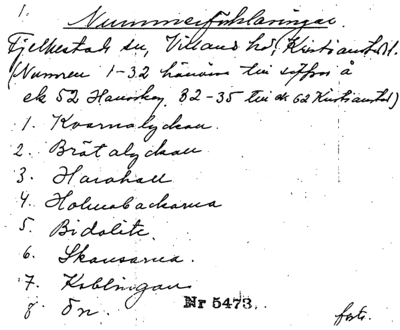 1.
Nummerförklaringar.
Fjelkestads sn, Villands hd, Kristianst. l.
(Numren 1-32 hänvisa till siffror å
ek 52 Hanaskog. 32-35 till ek 62 Kristianstad)
1. Kvarnalyckan.
2. Brätalyckan
3. Harahall
4. Holmabackarna
5. Bidalite
6. Skansarna.
7. Kobbningan
8. Ön. Nr 5473. forts.